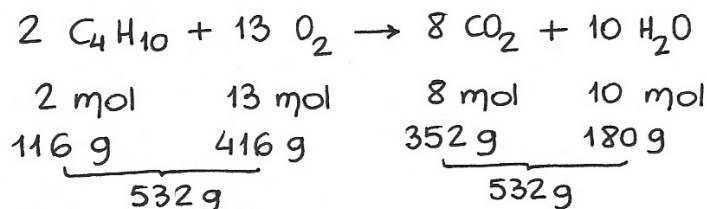 2 C₄H₁₀ + 13 O₂ → 8 CO₂ + 10 H₂O
2 mol 13 mol 8 mol 10 mol
116 g 416 g 352 g 180 g
532 g 532 g